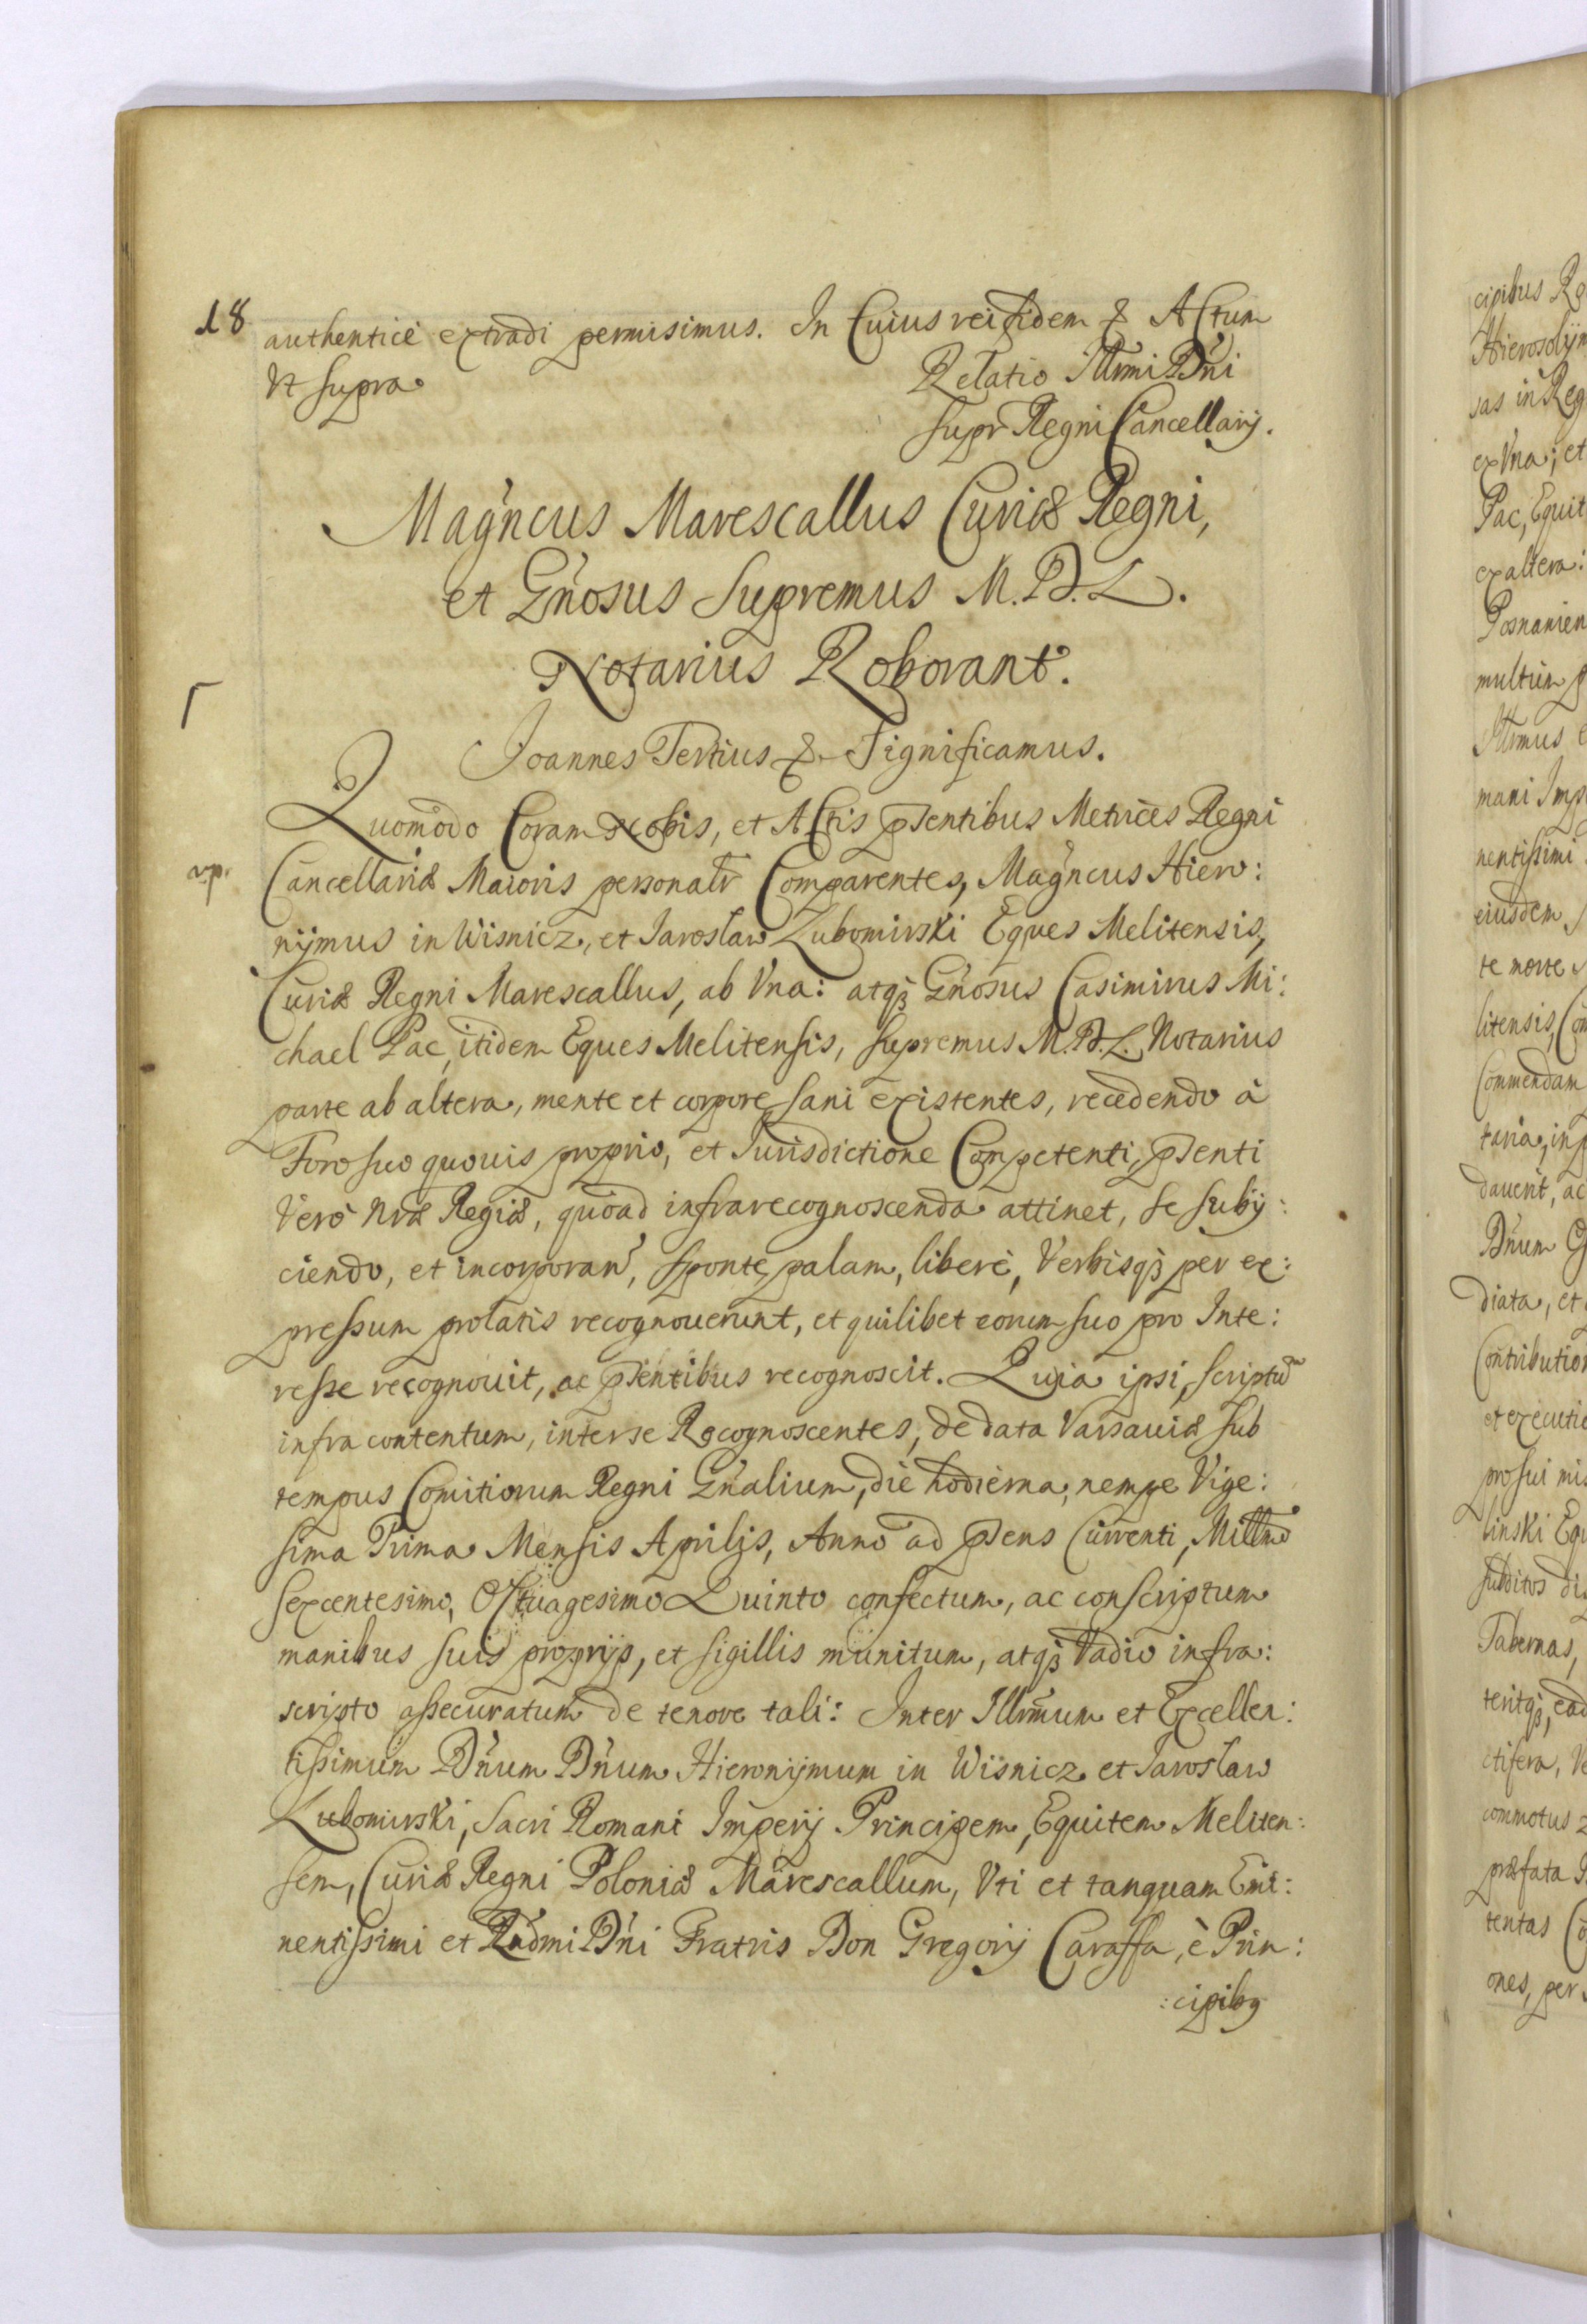 18
authenticè extradi permisimus. In Cuius rei fidem & Actum
Vt supra
Relatio Illrmi Dni
Supr Regni Cancellarij.
Magncus Marescallus Curiæ Regni,
et Gnosus Supremus M. D. L.
Notarius Roborant.
Joannes Tertius & Significamus.
Quomodo Coram Nobis, et Actis pntibus Metrices Regni
Cancellariæ Maioris personalr Comparentes, Magncus Hiero:
nijmus in Wisnicz, et Jarosław Lubomirski Eques Melitensis,
Curiæ Regni Marescallus, ab Vna: atq3 Gnosus Casimirus Mi:
chael Pac, itidem Eques Melitensis, Supremus M. D. L. Notarius
parte ab altera, mente et corpore sani existentes, recedendo à
Foro suo quouis proprio, et Jurisdictione Competenti, pnti
Vero Nræ Regiæ, quoad infrarecognoscenda attinet, se subij:
ciendo, et incorporan, sponte, palam, liberè, Verbisq3 per ex:
pressum prolatis recognouerunt, et quilibet eorum suo pro Inte:
resse recognouit, ac pntibus recognoscit. Quia ipsi, scriptu
infra contentum, inter se Recognoscentes, de data Varsauiæ sub
tempus Comitiorum Regni Gnalium, die hodierna, nempe Vige:
sima Prima Mensis Aprilis, Anno ad pns Currenti, Millmo
Sexcentesimo, Octuagesimo Quinto confectum, ac conscriptum
manibus suis proprijs, et sigillis munitum, atq3 Vadio infra:
scripto assecuratum de tenore tali: Inter Illrmum et Excellen:
tissimum Dnum Dnum Hieronijmum in Wisnicz et Jarosław
Lubomirski, Sacri Romani Imperij Principem, Equitem Meliten:
sem, Curiæ Regni Poloniæ Marescallum, Vti et tanquam Emi:
nentissimi et Rndmi Dni Fratris Don Gregorij Caraffa, è Prin:
:cipibg
cipibus
Hierosolijm
sas in Reg
ex Vna; et
Pac, Equit
ex altera:
Posnanien
multum
Illrmus
mani Imp
nentissimi
eiusdem
te morte
litensis, Com
Commendam
taria, in
dauerit, ac
Dnum
diata, et
Contribution
et executio
pro sui
linski Equ
subditos
Tabernas,
teritq3, ead
ctifera,
commotus
præfata
tentas
ones, per